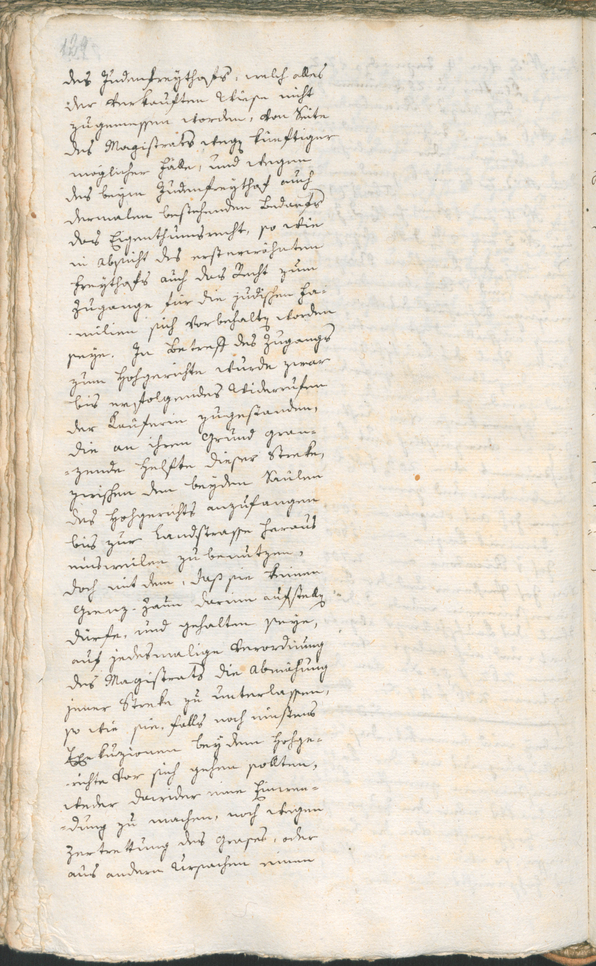 129.
des Judenfreythofs, welch alles
der verkauften Wiese nicht
zugemessen worden, von Seite
des Magistrats wegen künftiger
möglicher Fälle, und wegen
des beÿm Judenfreythof auch
dermalen bestehenden Bedarfs
das Eigenthumsrecht, so wie
in Absicht des ersterwöhnten
Freythofs auch das Recht zum
Zugange für die jüdischen Fa-
milien sich vorbehalten worden
seye. In Betreff des Zugangs
zum Hohgerichte wurde zwar
bis erfolgendes Widerrufen
der Käuferin zugestanden,
die an ihrem Grund gran-
zende Helfte dieser Streke,
zwischen den beyden Säulen
des Hohgerichts anzufangen
bis zur Landstrasse heraus
einsweilen zu benutzen,
doch mit dem, daß sie keinen
Grenz-Zaun darinn aufstellen
dürfe, und gehalten seye,
auf jedesmalige Verordnung
des Magistrats die Abmähung
jener Streke zu unterlassen,
so wie sie, falls noch einstens
Exekuzionen bey dem Hohge-
richte vor sich gehen sollten,
weder dawider eine Einwen-
dung zu machen, noch wegen
Zertrettung des Grases, oder
aus andern Ursachen einen